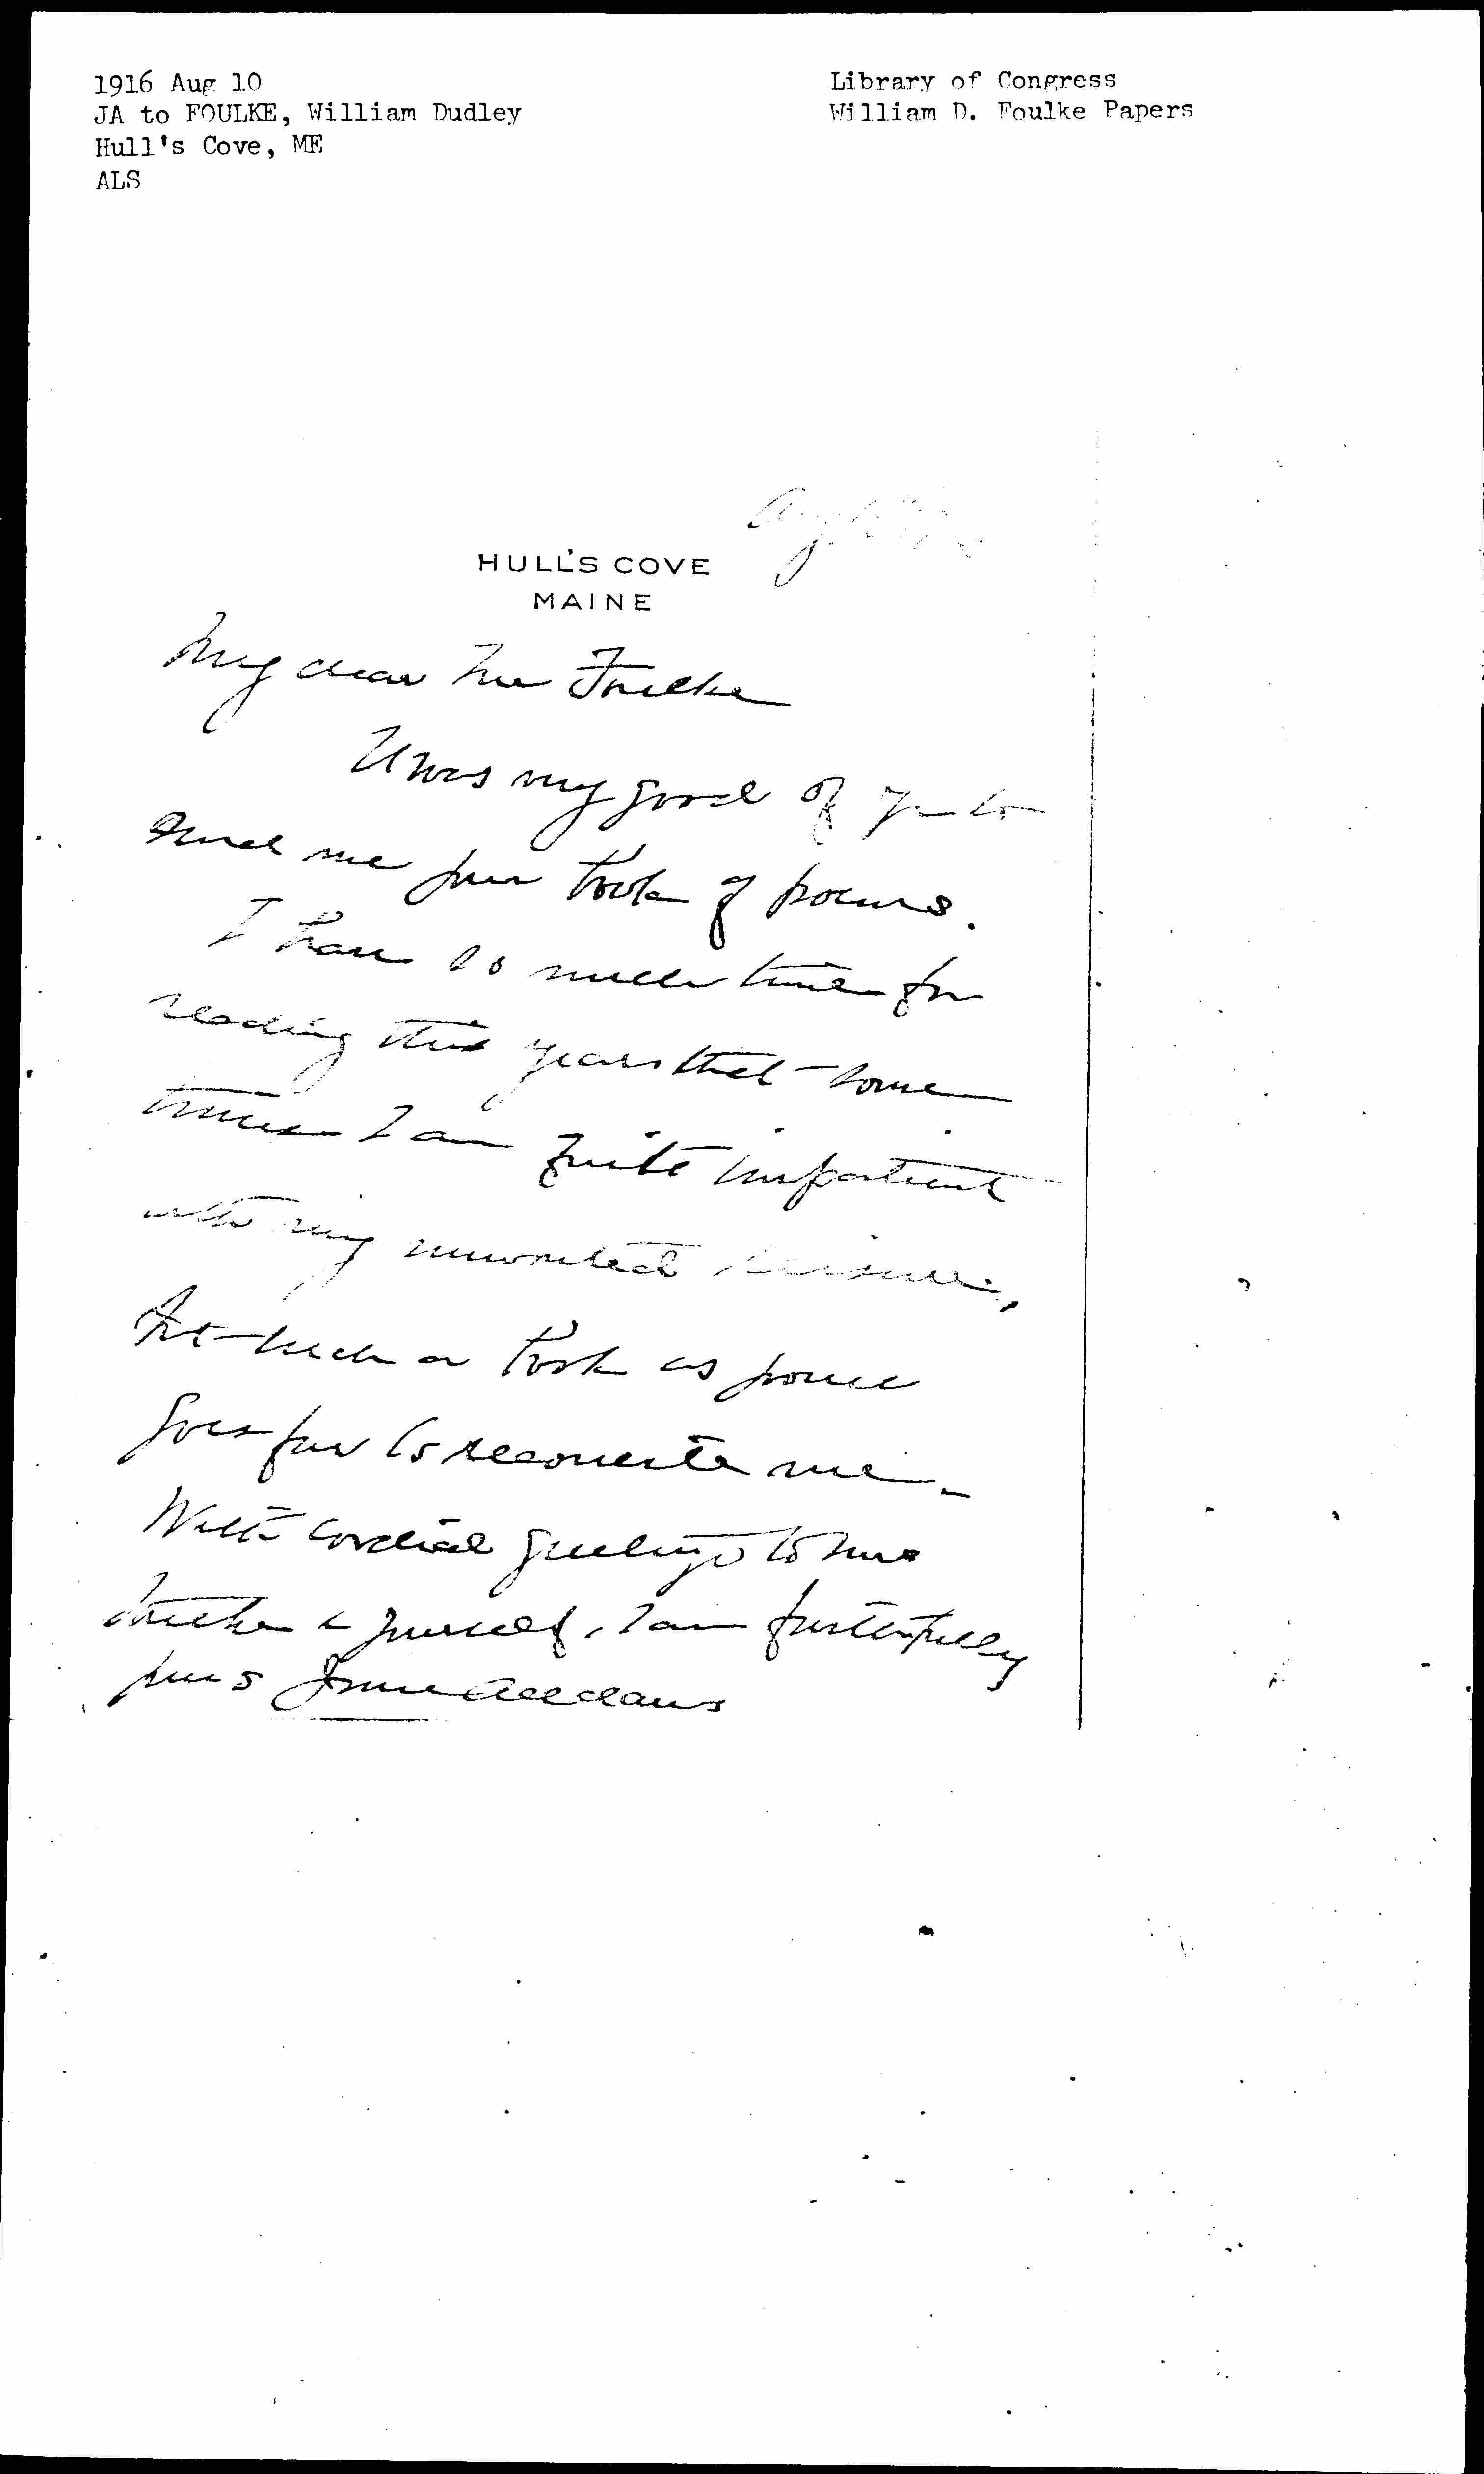 1916 Aug 10
JA to FOULKE, William Dudley
Hull's Cove, ME
ALS
Library of Congress
William D. Foulke Papers
Aug
HULL'S COVE
MAINE
My dear Mr Foulke
It was very good of you to
send me your book of poems.
I have so much time for
reading this year that some
times I am quite impatient
with my unwonted leisure,
but such a book as yours
goes far to reconcile me.
With cordial greetings to Mrs
Foulke & yourself, I am faithfully
yours Jane Addams